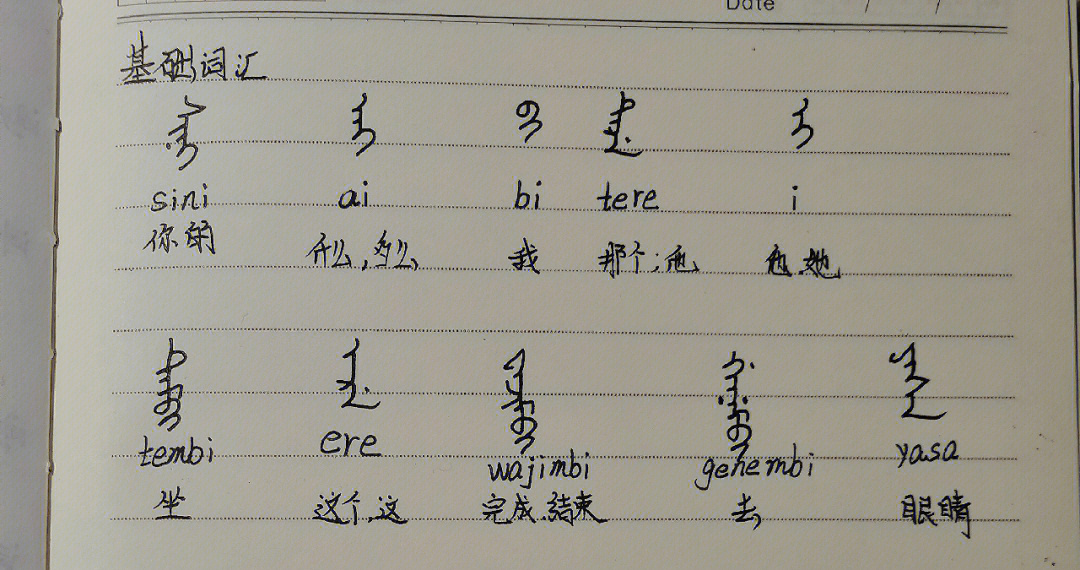 Date / /
基础词汇
ᠰᡳᠨᡳ ᠠᡳ ᠪᡳ ᡨᡝᡵᡝ ᡳ
sini ai bi tere i
你的 什么,多么 我 那个;他 他.她
ᡨᡝᠮᠪᡳ ᡝᡵᡝ ᠸᠠᠵᡳᠮᠪᡳ ᡤᡝᠨᡝᠮᠪᡳ ᠶᠠᠰᠠ
tembi ere wajimbi genembi yasa
坐 这个.这 完成.结束 去 眼睛